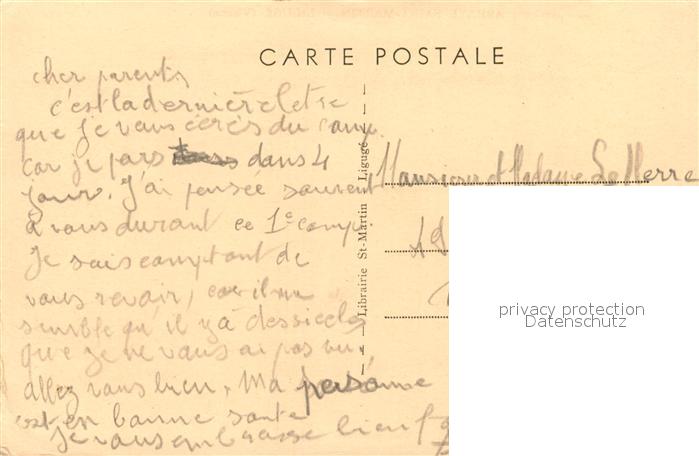 CARTE POSTALE
cher parents
c'est la dernière letre
que je vous ecris du camp
car je pars dans 4
jour. J'ai pensée souvent
à vous durant ce 1e camp.
Je suis comptant de
vous revoir, car il me
semble qu'il y a des siecles
que je ne vous ai pas vu,
allez vous bien, Ma personne
est en bonne sante
Je vous embrasse bien f
Librairie St-Martin Ligugé
Monsieur et Madame Le Merre
privacy protection
Datenschutz